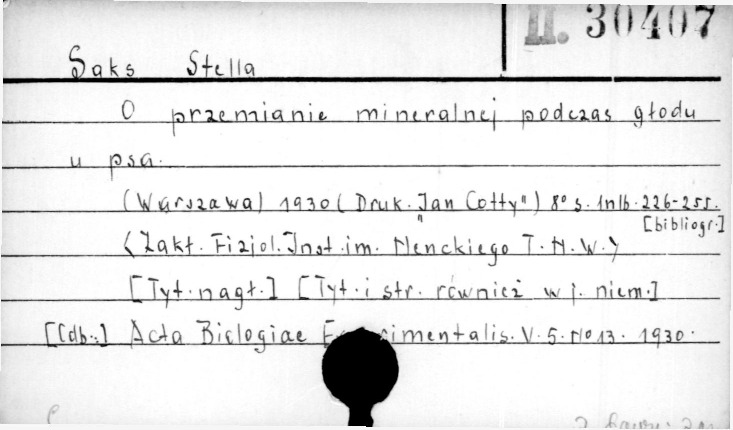 II. 30407
Saks Stella
O przemianie mineralnej podczas głodu
u psa.
(Warszawa) 1930 (Druk. „Jan Cotty") 8° s. 1nlb. 226-255.
[bibliogr.]
<Zakł. Fizjol. Inst. im. Nenckiego T. N. W.>
[Tyt. nagł.] [Tyt. i str. również w j. niem.]
[Odb.:] Acta Biologiae imentalis. V. 5. No 13. 1930.